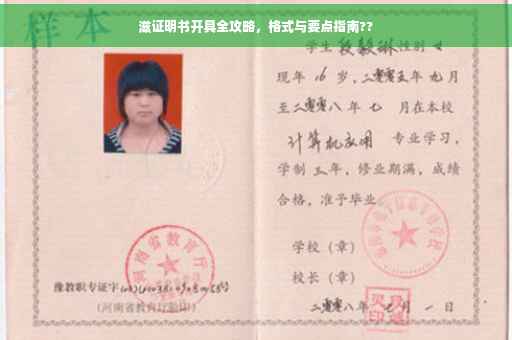 滋证明书开具全攻略，格式与要点指南??
样本
学生 段毅琳 性别 女
现年 16 岁，二零零五年 九 月
至二零零八年 七 月在本校
计算机应用 专业学习，
学制 三 年，修业期满，成绩
合格，准予毕业。
学校（章）
校长（章）
二零零八年 七 月 一 日
河南省教育厅
豫教职专证字
（河南省教育厅验印）